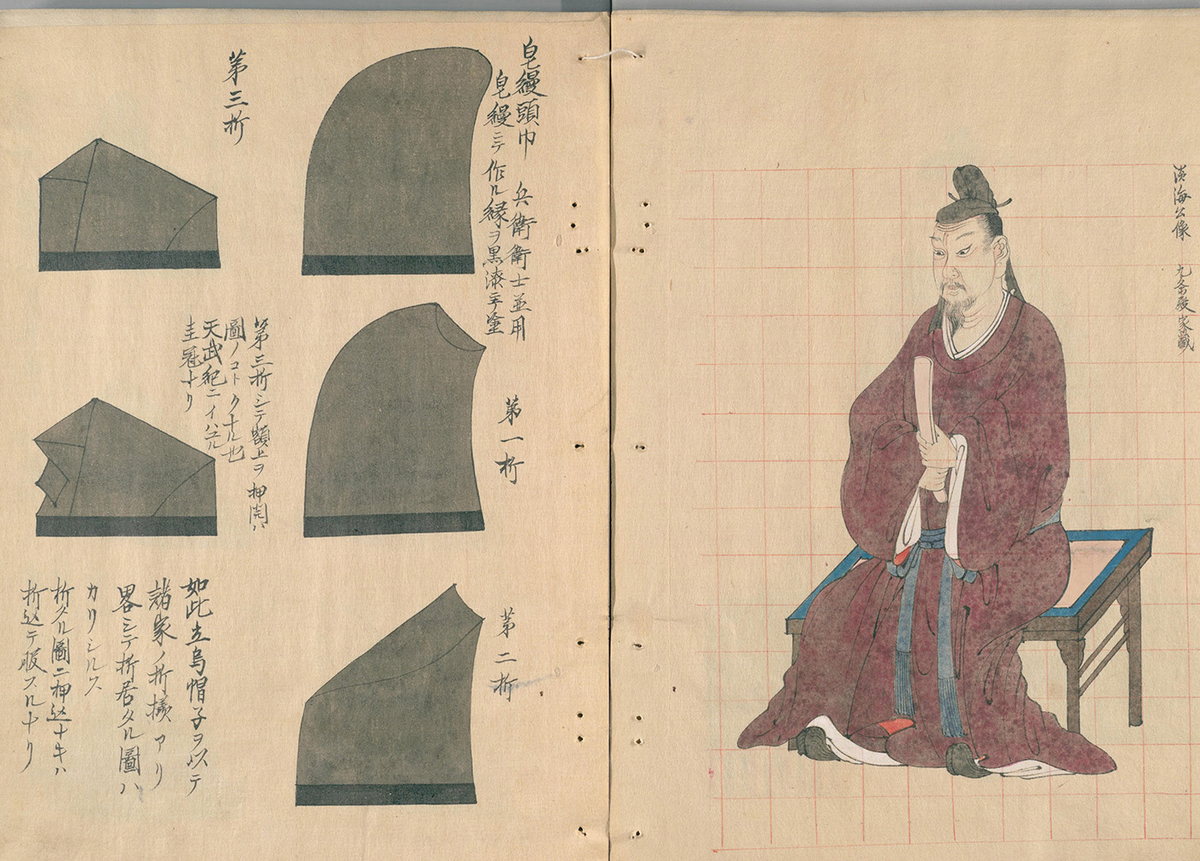 淡海公像　九条殿家蔵
皂縵頭巾　兵衛衛士並用
皂縵ニテ作ル縁ヲ黒漆ニテ塗
第一折
第二折
第三折
第三折シテ額上ヲ押開ハ
圖ノコトクナル也
天武紀ニイハユル
圭冠ナリ
如此立烏帽子ヲ以テ
諸家ノ折様アリ
畧シテ折居タル圖ハ
カリシルス
折タル圖ニ押込ナキハ
折込テ服スルナリ